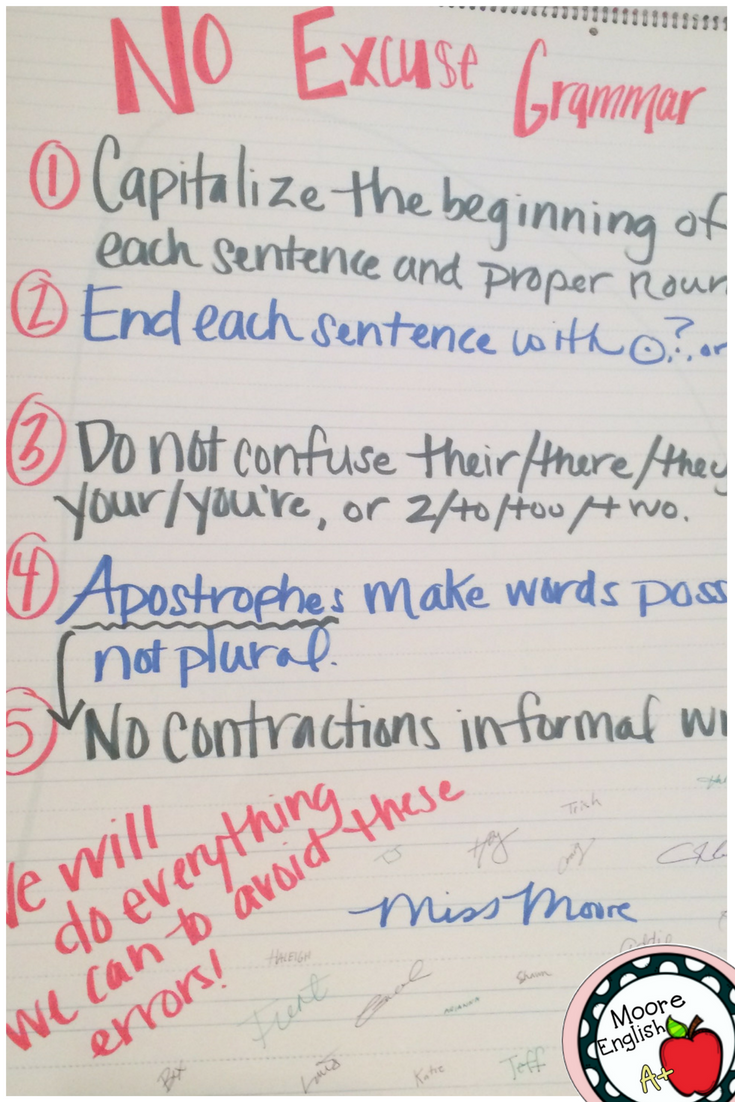 No Excuse Grammar
① Capitalize the beginning of
each sentence and proper noun
② End each sentence with . ? or
③ Do not confuse their/there/they
your/you're, or 2/to/too/two.
④ Apostrophes make words poss
not plural.
⑤ No contractions in formal wr
We will
do everything
we can to avoid these
errors!
Trish
Miss Moore
HALEIGH
Trent
Shawn
ARIANNA
Katie
Jeff
Moore
English
A+